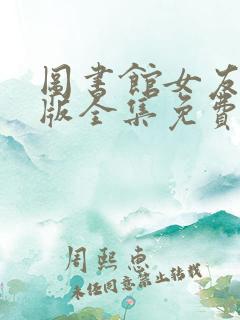 圖書館女友
版全集免費
周熙惠
未经同意禁止转载